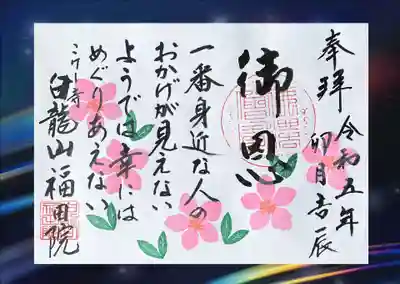 奉拝 令和五年
卯月吉辰
御恩
一番身近な人の
おかげが見えない
ようでは幸には
めぐりあえない
こけし寺
白龍山福田院